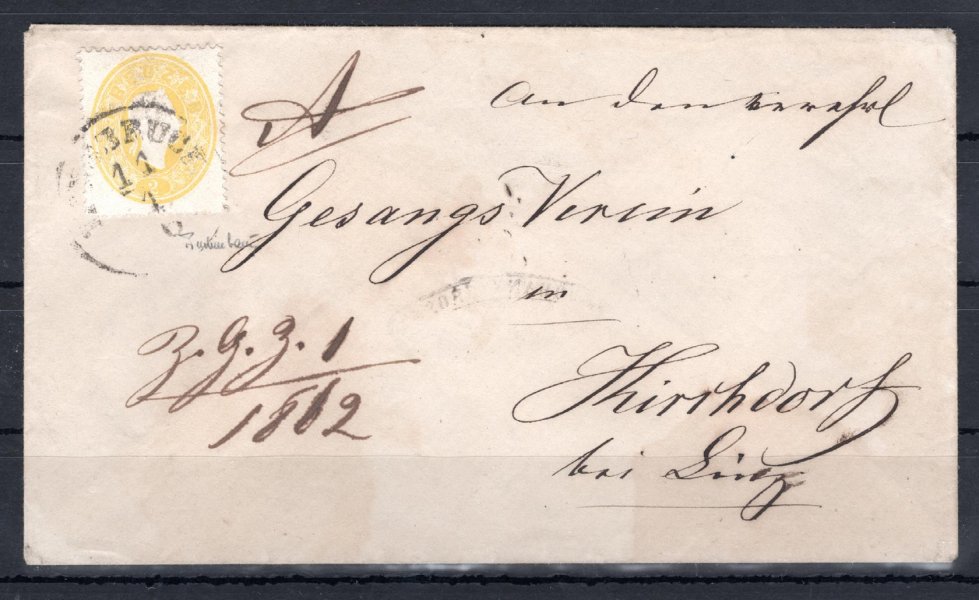 A
An den verehrl
Gesangs Verein
in
Kirchdorf
bei Linz
Z. G. Z. 1
1862
BRUCK
11
1
2